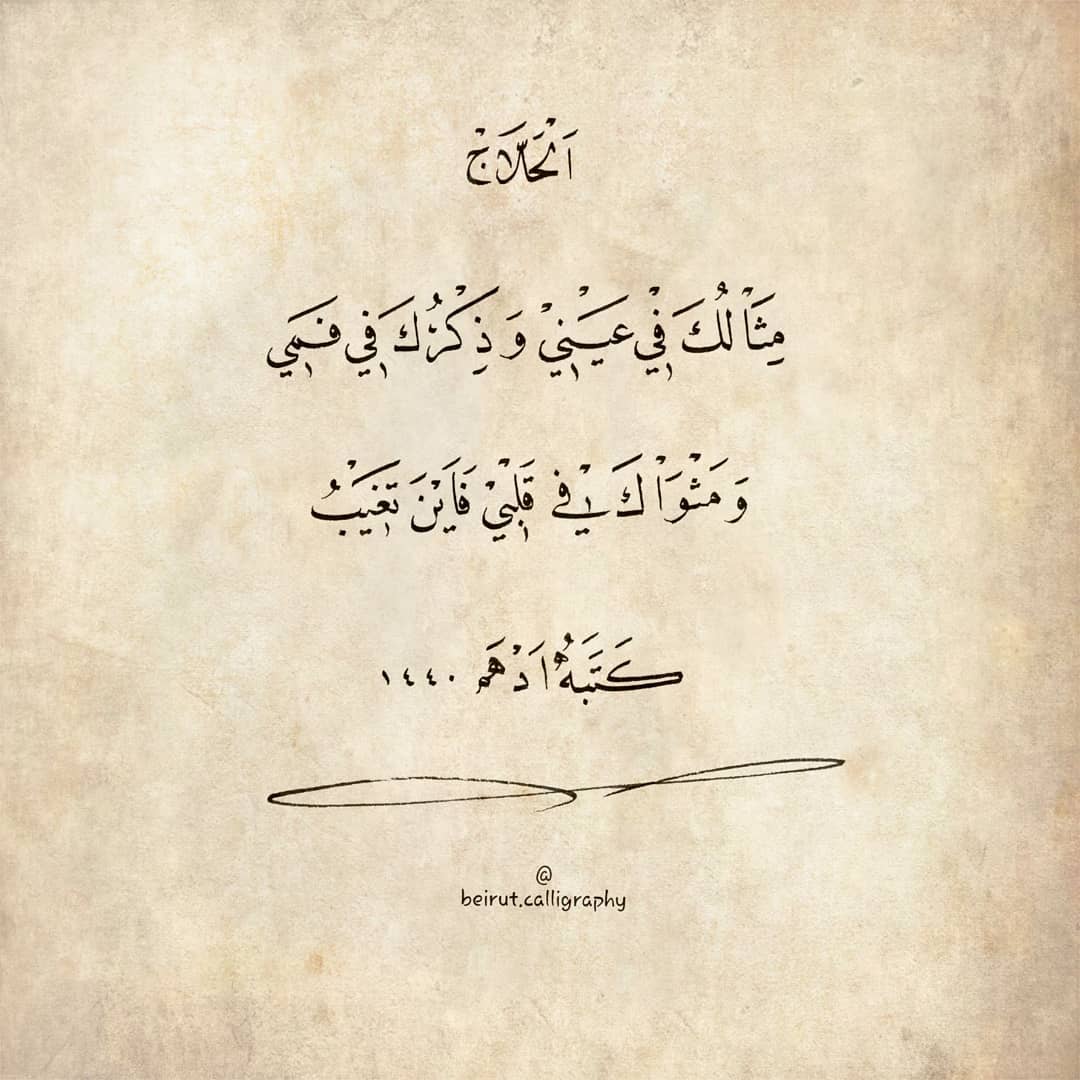 اَلْحَلَّاجْ
مِثَالُكَ فِيْ عَيْنِيْ وَ ذِكْرُكَ فِي فَمِي
وَ مَثْوَاكَ فِيْ قَلْبِيْ فَاَيْنَ تَغِيْبُ
كَتَبَهُ اَدْهَم ١٤٤٠
@
beirut.calligraphy